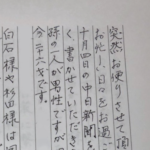 突然お便りさせて頂
お忙しい日々をお過ご
十月四日の中日新聞を
く、書かせていただき
の一人が男性ですが
今二十六才です。
白石様や杉田様は